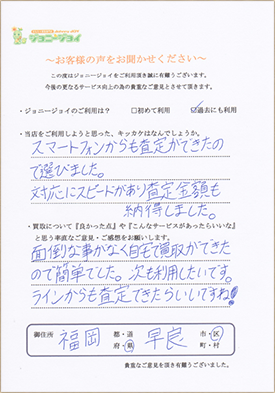 ジョニージョイ
～お客様の声をお聞かせください～
この度はジョニージョイをご利用頂き誠に有難うございます。
今後の更なるサービス向上の為の貴重なご意見とさせて頂きます。
・ジョニージョイのご利用は？ □初めて利用 ☑過去にも利用
・当店をご利用しようと思った、キッカケはなんでしょうか。
スマートフォンからも査定ができたの
で選びました。
対応にスピードがあり査定金額も
納得しました。
・買取について『良かった点』や『こんなサービスがあったらいいな』
と思う率直なご意見・ご感想をお願いします。
面倒な事がなく自宅で買取ができた
ので簡単でした。次も利用したいです。
ラインからも査定できたらいいですね!
御住所 福岡 都・道 府・県 早良 市・区 町・村
貴重なご意見を頂き有難うございました。